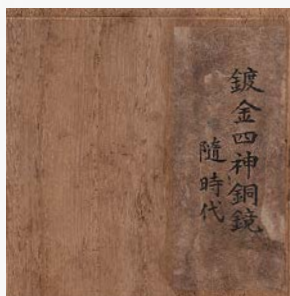 鍍金四神銅鏡
隨時代